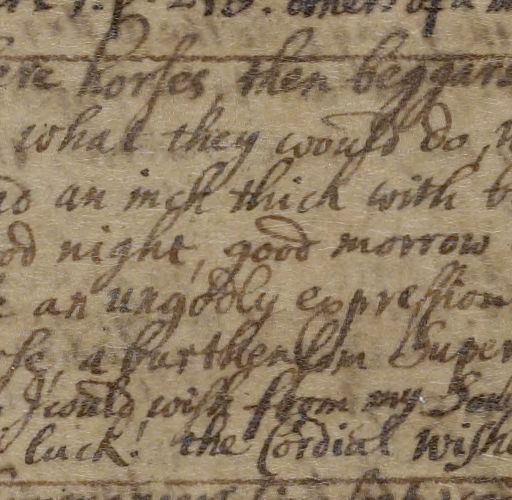 horses, then beggars
what they would do,
an inch thick with
night, good morrow
an ungodly expression
a burthensom Super
I could wish from my Soul
luck! the Cordial wishe